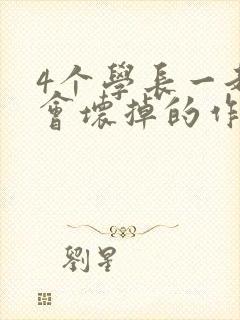 4个學長一
會壞掉的作
劉星